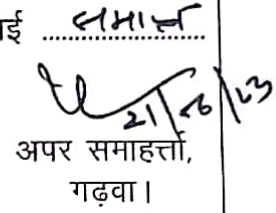 ई समाप्त
21/06/23
अपर समाहर्त्ता,
गढ़वा।